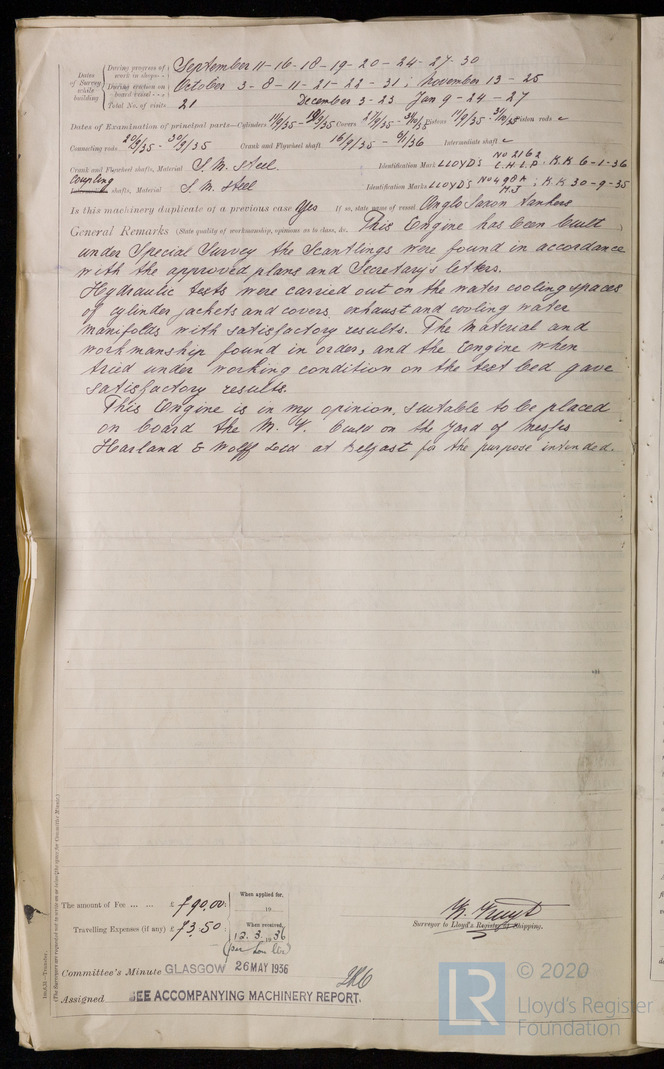 Dates of Survey while building
During progress of work in shops - - September 11 - 16 - 18 - 19 - 20 - 24 - 27 - 30
During erection on board vessel - - - October 3 - 8 - 11 - 21 - 22 - 31 ; November 13 - 25
Total No. of visits 21 December 3 - 23 Jan 9 - 24 - 27
Dates of Examination of principal parts—Cylinders Covers Pistons Piston rods
Connecting rods 20/9/35 - 30/9/35 Crank and Flywheel shaft 16/9/35 - 6/1/36 Intermediate shaft
Crank and Flywheel shafts, Material S. M. Steel. Identification Mark LLOYD'S No 2162 L.H.L.D. K.K. 6-1-36
Coupling shafts, Material S M Steel Identification Mark LLOYD'S No 498A H.J. ; K.K 30-9-35
Is this machinery duplicate of a previous case Yes If so, state name of vessel Anglo Saxon Tankers
General Remarks (State quality of workmanship, opinions as to class, &c. This Engine has been built
under Special Survey the Scantlings were found in accordance
with the approved plans and Secretary's letters.
Hydraulic tests were carried out on the water cooling spaces
of cylinder jackets and covers, exhaust and cooling water
manifolds with satisfactory results. The Material and
workmanship found in order, and the Engine when
tried under working condition on the test bed gave
satisfactory results.
This Engine is in my opinion, suitable to be placed
on board the M. V. build on the Yard of Messrs
Harland & Wolff Ltd at Belfast for the purpose intended.
The amount of Fee ... ... £ f 90.00 : When applied for,
19
Travelling Expenses (if any) £ f 3.50 : When received,
12.3.1936
Surveyor to Lloyd's Register of Shipping.
Committee's Minute GLASGOW 26 MAY 1936
Assigned SEE ACCOMPANYING MACHINERY REPORT.
(The Surveyors are requested not to write on or below the space for Committee's Minute.)
© 2020
LR Lloyd's Register
Foundation